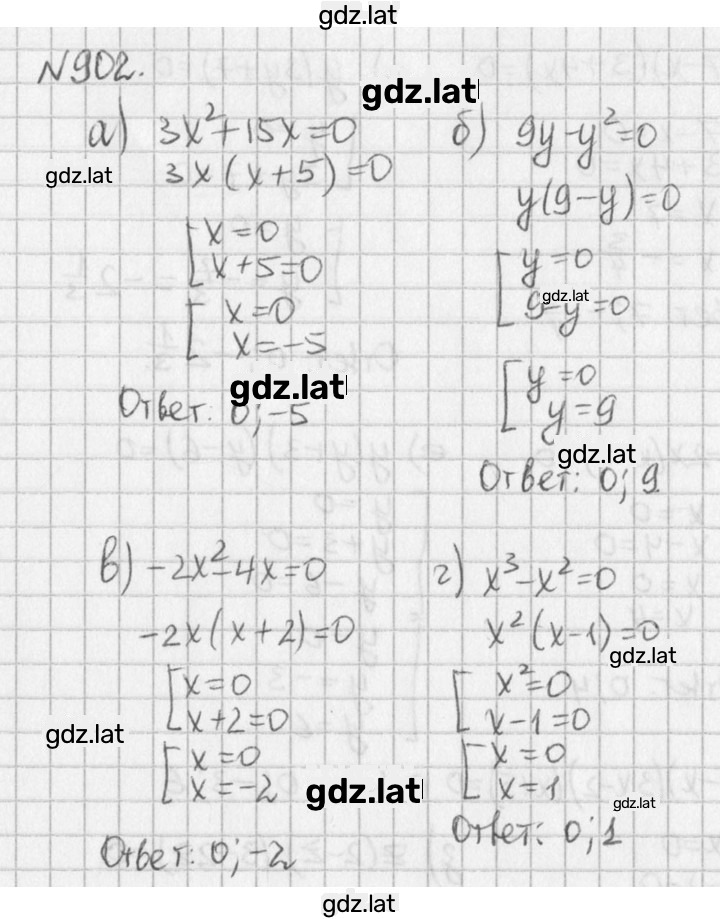 gdz.lat
№902.
gdz.lat
а) 3x²+15x=0
gdz.lat
3x(x+5)=0
x=0
x+5=0
x=0
x=-5
gdz.lat
Ответ: 0;-5
б) 9y-y²=0
y(9-y)=0
y=0
gdz.lat
9-y=0
y=0
y=9
gdz.lat
Ответ: 0; 9
в) -2x²-4x=0
-2x(x+2)=0
x=0
x+2=0
gdz.lat
x=0
x=-2
gdz.lat
Ответ: 0;-2
г) x³-x²=0
x²(x-1)=0
gdz.lat
x²=0
x-1=0
x=0
x=1
gdz.lat
Ответ: 0;1
gdz.lat